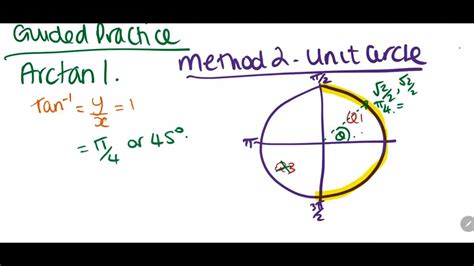 Guided Practice
Arctan 1.
tan⁻¹ = y/x = 1
= π/4 or 45°.
Method 2 - Unit Circle
π/2
√2/2, √2/2
π/4 =
Q1
π
Q3
3π/2